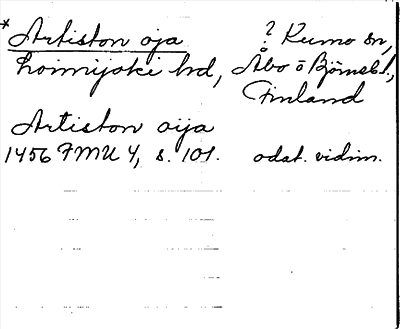 *Artiston oja ? Kumo sn,
Loimijoki hd, Åbo o Björneb l.,
Finland
Artiston oija
1456 FMU 4, s. 101. odat. vidim.